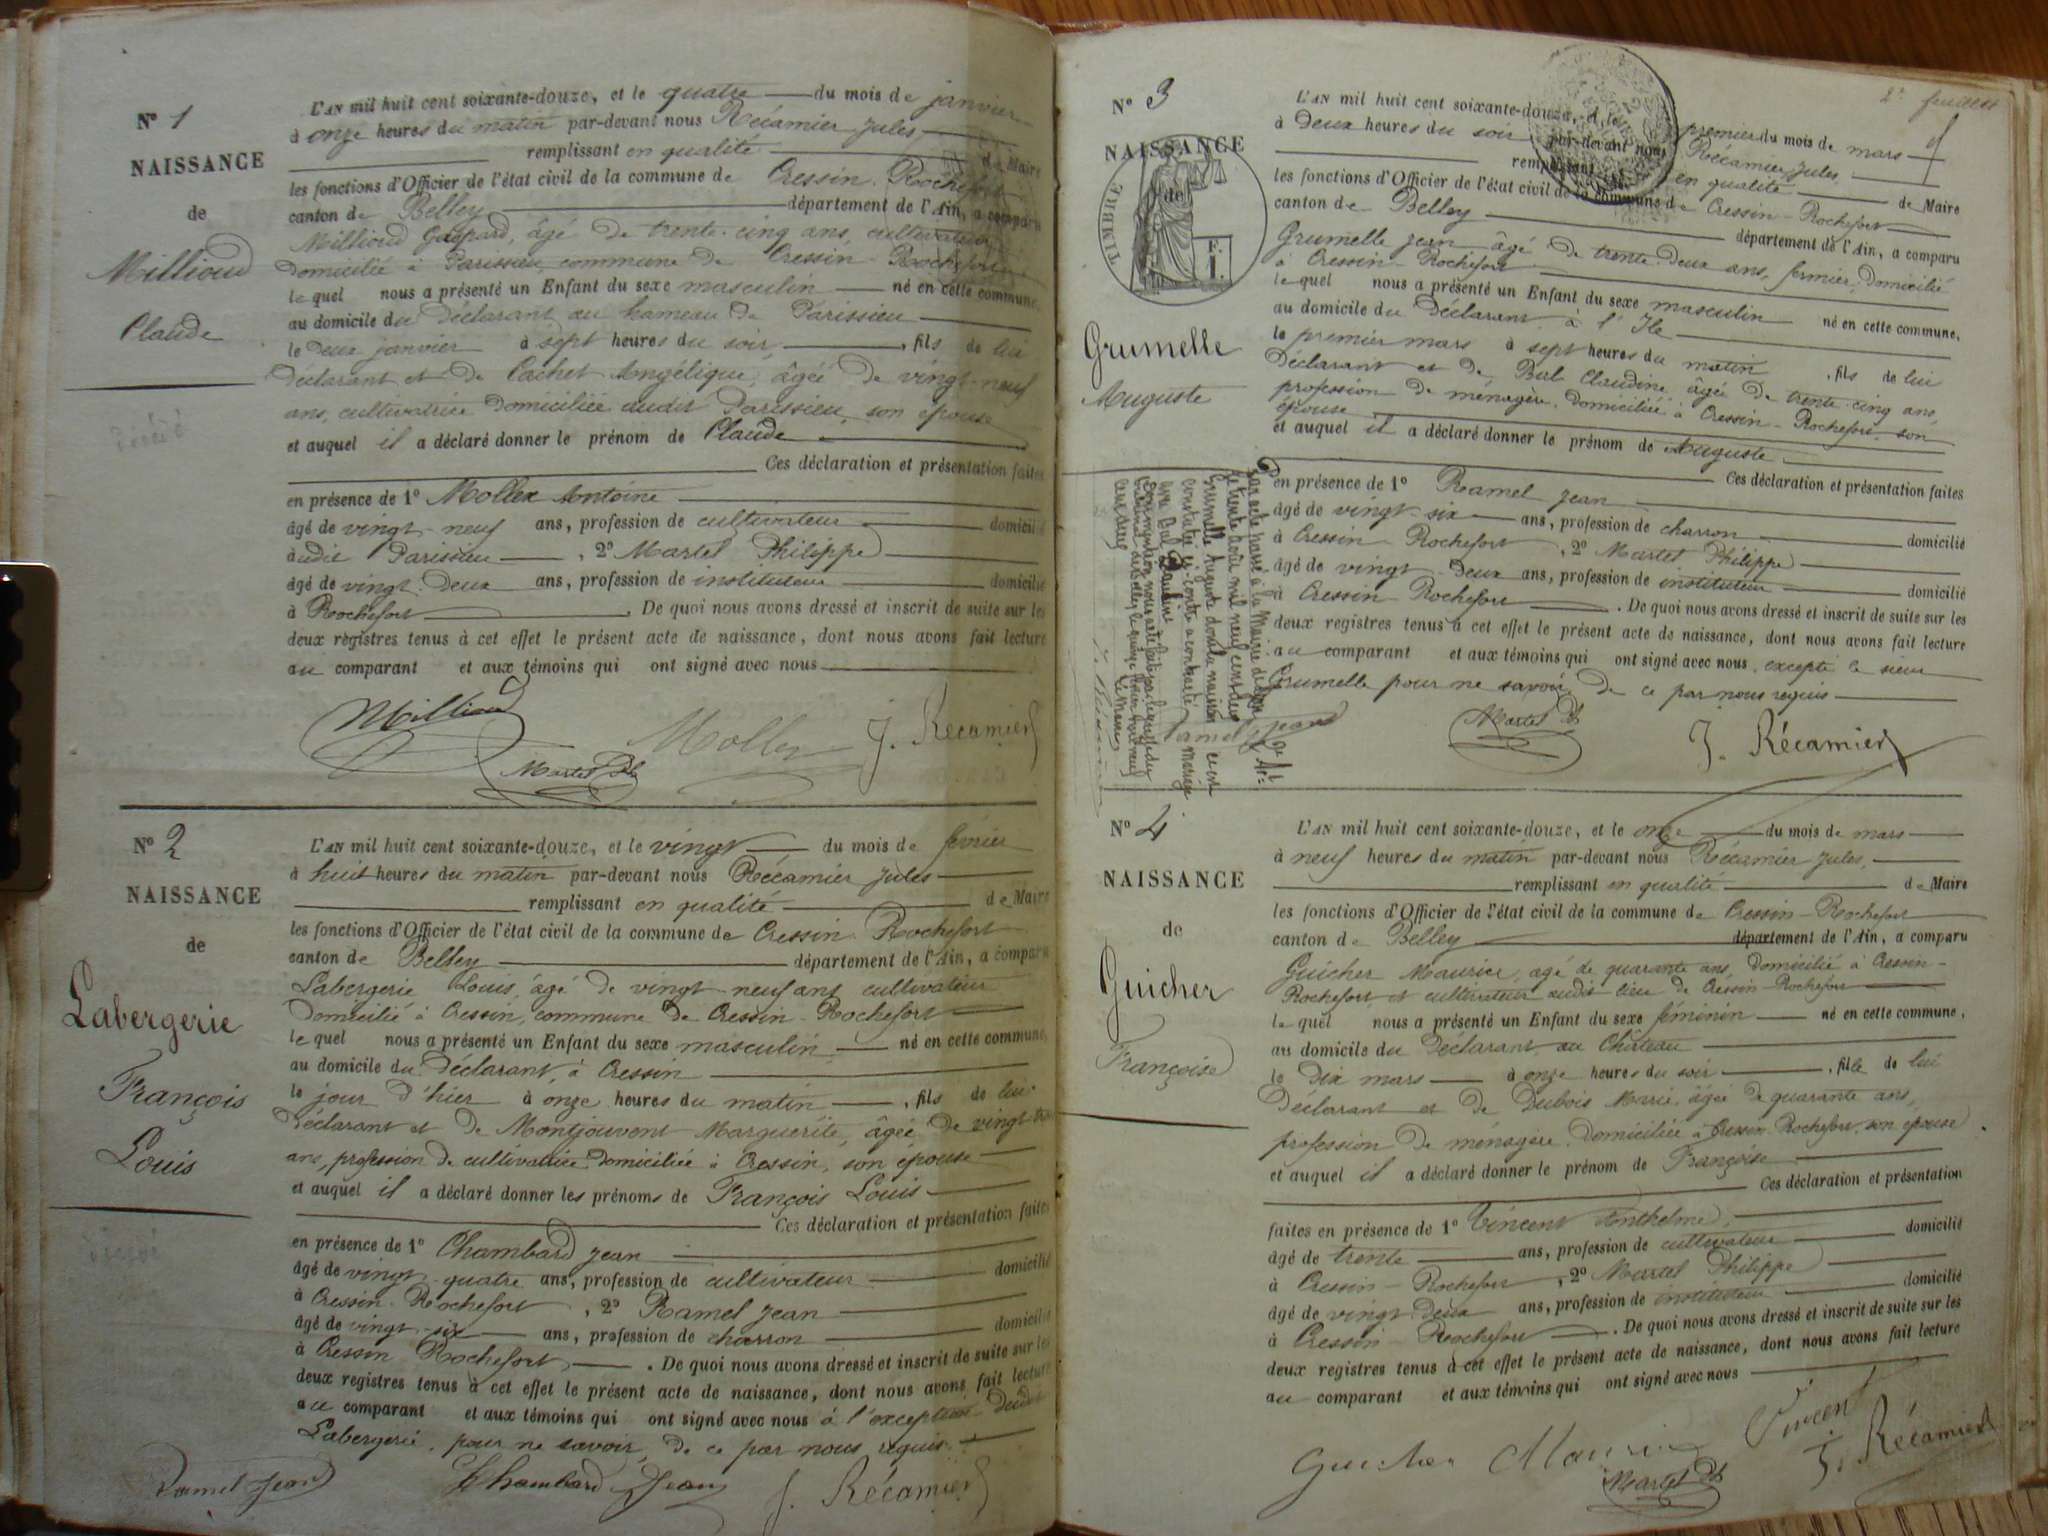 Nº 1
NAISSANCE
de
Millioud
Claude
L'AN mil huit cent soixante-douze, et le quatre du mois de janvier
à onze heures du matin par-devant nous Récamier Jules
remplissant en qualité de Maire
les fonctions d'Officier de l'état civil de la commune de Cressin-Rochefort
canton de Belley département de l'Ain, a comparu
Millioud Gaspard, âgé de trente-cinq ans, cultivateur
domicilié à Parissieu commune de Cressin-Rochefort
lequel nous a présenté un Enfant du sexe masculin né en cette commune,
au domicile du déclarant au hameau de Parissieu
le deux janvier à sept heures du soir, fils de lui
déclarant et de Cachet Angélique, âgée de vingt-neuf
ans, cultivatrice domiciliée audit Parissieu, son épouse
et auquel il a déclaré donner le prénom de Claude
Ces déclaration et présentation faites
en présence de 1º Mollex Antoine
âgé de vingt-neuf ans, profession de cultivateur domicilié
audit Parissieu, 2º Martel Philippe
âgé de vingt-deux ans, profession de instituteur domicilié
à Rochefort. De quoi nous avons dressé et inscrit de suite sur les
deux registres tenus à cet effet le présent acte de naissance, dont nous avons fait lecture
au comparant et aux témoins qui ont signé avec nous
Millioud
Martel Ph
Mollex
J. Récamier
Nº 2
NAISSANCE
de
Labergerie
François
Louis
L'AN mil huit cent soixante-douze, et le vingt du mois de février
à huit heures du matin par-devant nous Récamier Jules
remplissant en qualité de Maire
les fonctions d'Officier de l'état civil de la commune de Cressin-Rochefort
canton de Belley département de l'Ain, a comparu
Labergerie Louis, âgé de vingt-neuf ans cultivateur
domicilié à Cressin, commune de Cressin-Rochefort
lequel nous a présenté un Enfant du sexe masculin né en cette commune,
au domicile du déclarant, à Cressin
le jour d'hier à onze heures du matin, fils de lui
déclarant et de Montjouvent Marguerite, âgée de vingt-
ans, profession de cultivatrice domiciliée à Cressin, son épouse
et auquel il a déclaré donner les prénoms de François Louis
Ces déclaration et présentation faites
en présence de 1º Chambard Jean
âgé de vingt-quatre ans, profession de cultivateur domicilié
à Cressin-Rochefort, 2º Ramel Jean
âgé de vingt-six ans, profession de charron domicilié
à Cressin Rochefort. De quoi nous avons dressé et inscrit de suite sur les
deux registres tenus à cet effet le présent acte de naissance, dont nous avons fait lecture
au comparant et aux témoins qui ont signé avec nous à l'exception dudit
Labergerie, pour ne savoir, de ce par nous requis
Ramel Jean
Chambard Jean
J. Récamier
2e feuillet
Nº 3
NAISSANCE
de
TIMBRE
F.
1.
Grumelle
Auguste
L'AN mil huit cent soixante-douze, et le premier du mois de mars
à deux heures du soir par-devant nous Récamier Jules
remplissant en qualité de Maire
les fonctions d'Officier de l'état civil de la commune de Cressin-Rochefort
canton de Belley département de l'Ain, a comparu
Grumelle Jean âgé de trente-deux ans, fermier, domicilié
à Cressin-Rochefort
lequel nous a présenté un Enfant du sexe masculin né en cette commune,
au domicile du déclarant à l'Ile
le premier mars à sept heures du matin, fils de lui
déclarant et de Bal Claudine âgée de trente-cinq ans,
profession de ménagère, domiciliée à Cressin-Rochefort, son
épouse
et auquel il a déclaré donner le prénom de Auguste
Ces déclaration et présentation faites
en présence de 1º Ramel Jean
âgé de vingt-six ans, profession de charron domicilié
à Cressin-Rochefort, 2º Martel Philippe
âgé de vingt-deux ans, profession de instituteur domicilié
à Cressin-Rochefort. De quoi nous avons dressé et inscrit de suite sur les
deux registres tenus à cet effet le présent acte de naissance, dont nous avons fait lecture
au comparant et aux témoins qui ont signé avec nous, excepté le sieur
Grumelle pour ne savoir, de ce par nous requis
Par acte passé à la Mairie de Lyon
le trente août mil neuf cent deux
Grumelle Auguste dont la naissance est
constatée ci-contre a contracté mariage
avec
Ramel Jean
Martel Ph
J. Récamier
Nº 4
NAISSANCE
de
Guicher
Françoise
L'AN mil huit cent soixante-douze, et le onze du mois de mars
à neuf heures du matin par-devant nous Récamier Jules,
remplissant en qualité de Maire
les fonctions d'Officier de l'état civil de la commune de Cressin-Rochefort
canton de Belley département de l'Ain, a comparu
Guicher Maurice, âgé de quarante ans, domicilié à Cressin-
Rochefort et cultivateur audit lieu de Cressin-Rochefort
lequel nous a présenté un Enfant du sexe féminin né en cette commune,
au domicile du déclarant au Château
le dix mars à onze heures du soir, fille de lui
déclarant et de Dubois Marie, âgée de quarante ans,
profession de ménagère domiciliée à Cressin-Rochefort, son épouse
et auquel il a déclaré donner le prénom de Françoise
Ces déclaration et présentation
faites en présence de 1º Vincent Anthelme,
âgé de trente ans, profession de cultivateur domicilié
à Cressin-Rochefort, 2º Martel Philippe
âgé de vingt-deux ans, profession de instituteur domicilié
à Cressin-Rochefort. De quoi nous avons dressé et inscrit de suite sur les
deux registres tenus à cet effet le présent acte de naissance, dont nous avons fait lecture
au comparant et aux témoins qui ont signé avec nous
Guicher Maurice
Vincent
Martel Ph
J. Récamier